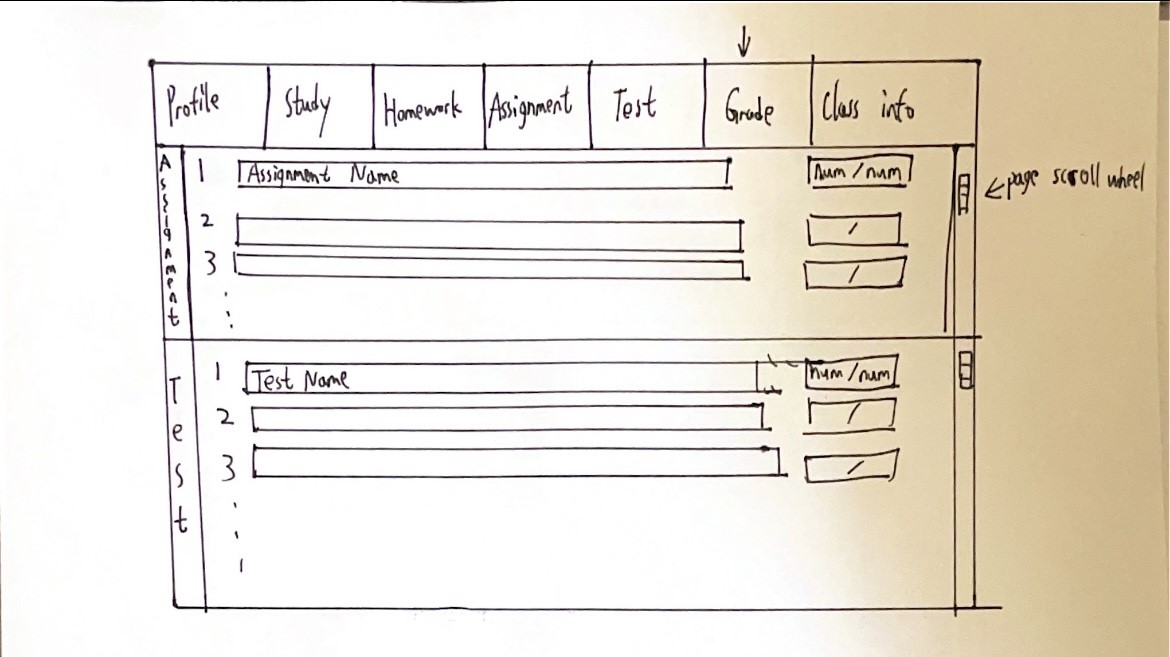 Profile Study Homework Assignment Test Grade Class info
Assignment
1 Assignment Name num/num
page scroll wheel
2 /
3 /
Test
1 Test Name num/num
2 /
3 /